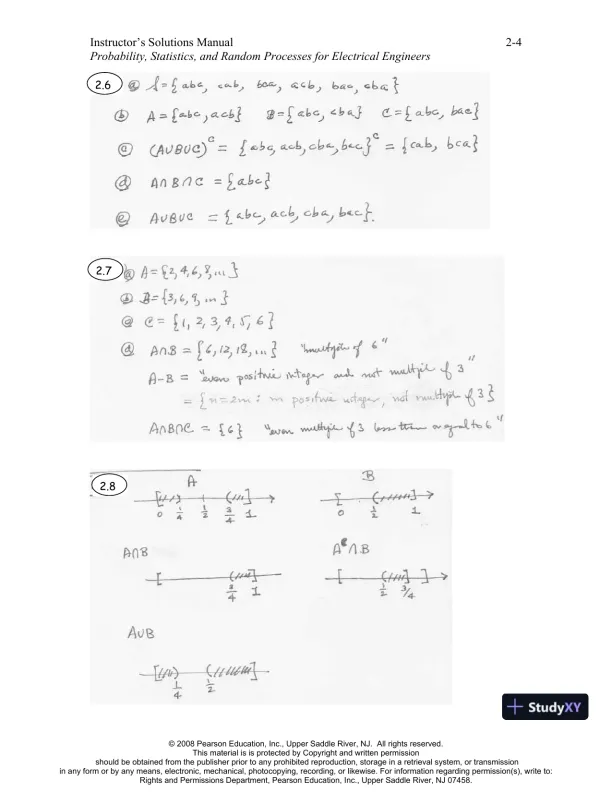 Instructor's Solutions Manual 2-4
Probability, Statistics, and Random Processes for Electrical Engineers
2.6 ⓐ S = {abc, cab, bca, acb, bac, cba}
ⓑ A = {abc, acb} B = {abc, cba} C = {abc, bac}
ⓒ (A∪B∪C)ᶜ = {abc, acb, cba, bac}ᶜ = {cab, bca}
ⓓ A∩B∩C = {abc}
ⓔ A∪B∪C = {abc, acb, cba, bac}.
2.7 ⓐ A = {2, 4, 6, 8, ...}
ⓑ B = {3, 6, 9, ...}
ⓒ C = {1, 2, 3, 4, 5, 6}
ⓓ A∩B = {6, 12, 18, ...} "multiple of 6"
A−B = "even positive integer and not multiple of 3"
= {n=2m : m positive integer, not multiple of 3}
A∩B∩C = {6} "even multiple of 3 less than or equal to 6"
2.8 A B
0 1/4 1/2 3/4 1 0 1/2 1
A∩B Aᶜ∩B
3/4 1 1/2 3/4
A∪B
1/4 1/2
StudyXY
© 2008 Pearson Education, Inc., Upper Saddle River, NJ. All rights reserved.
This material is is protected by Copyright and written permission
should be obtained from the publisher prior to any prohibited reproduction, storage in a retrieval system, or transmission
in any form or by any means, electronic, mechanical, photocopying, recording, or likewise. For information regarding permission(s), write to:
Rights and Permissions Department, Pearson Education, Inc., Upper Saddle River, NJ 07458.